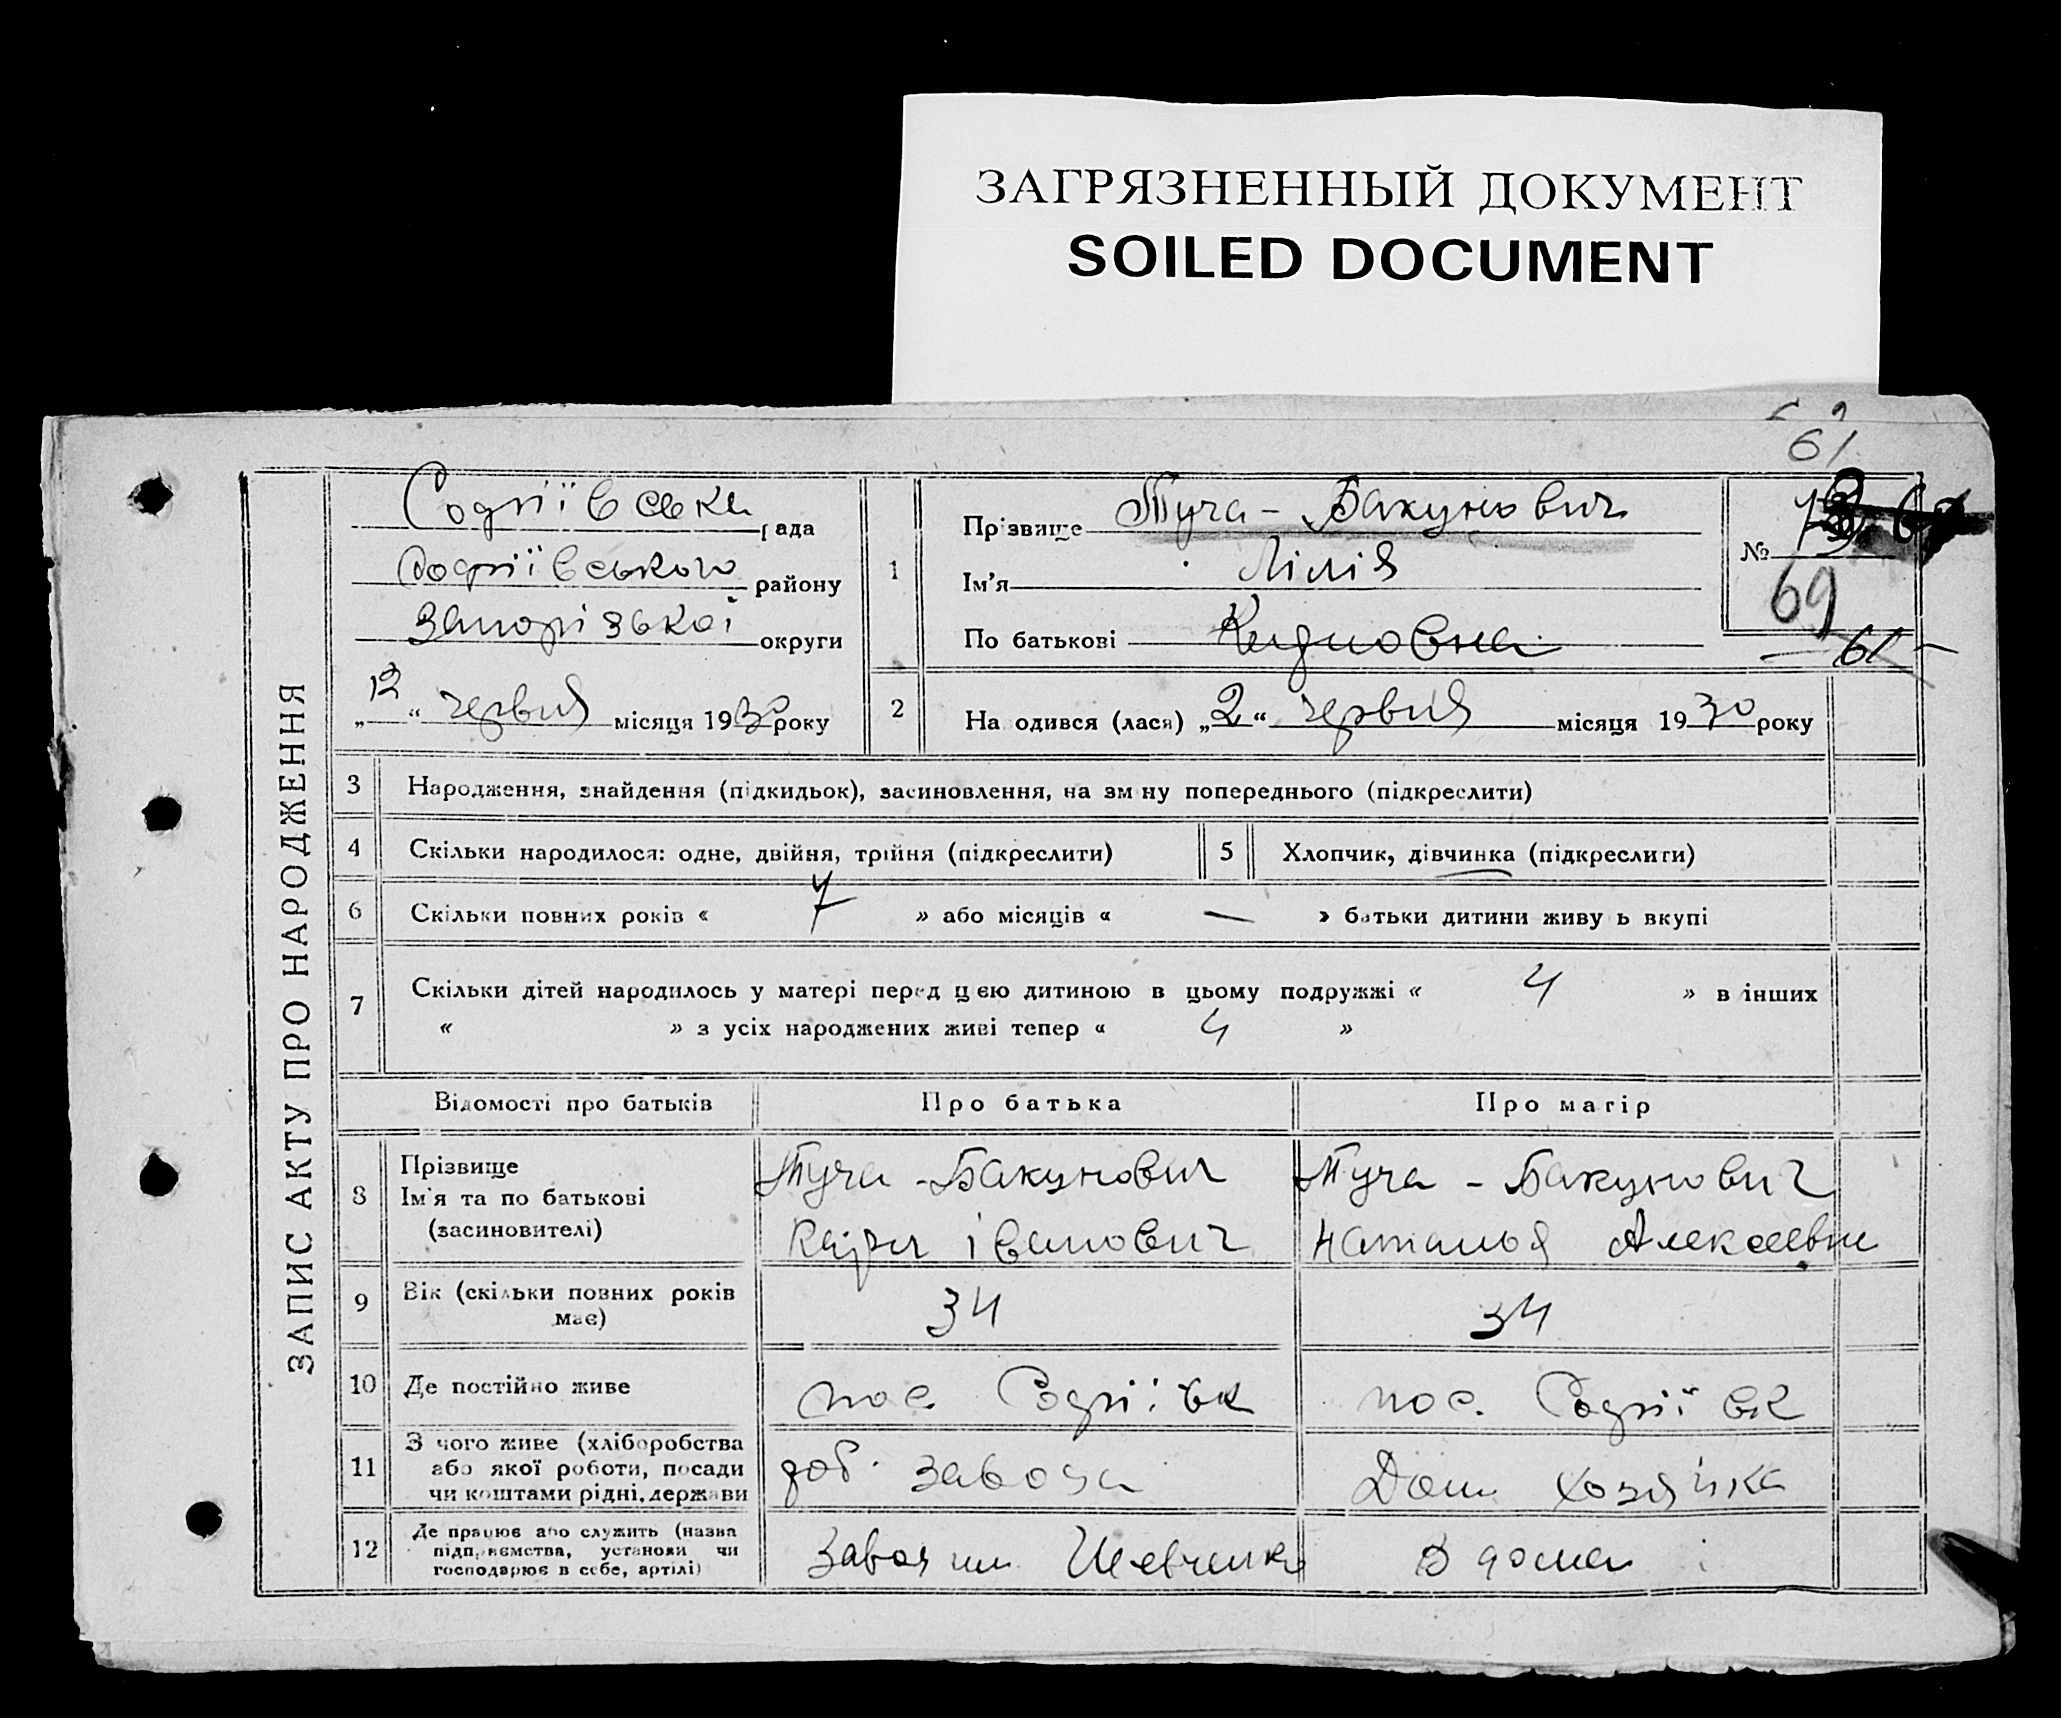 ЗАГРЯЗНЕННЫЙ ДОКУМЕНТ
SOILED DOCUMENT
61
ЗАПИС АКТУ ПРО НАРОДЖЕННЯ
Софіївська рада
Софіївського району
Запорізької округи
„12“ червня місяця 1930 року
1
Прізвище Туча - Бакунович
Ім'я Лілія
По батькові
№
69
61
2 На одився (лася) „2“ червня місяця 1930 року
3 Народження, знайдення (підкидьок), засиновлення, на зміну попереднього (підкреслити)
4 Скільки народилося: одне, двійня, трійня (підкреслити)
5 Хлопчик, дівчинка (підкреслити)
6 Скільки повних років « 7 » або місяців « — » батьки дитини живуть вкупі
7 Скільки дітей народилось у матері перед цією дитиною в цьому подружжі « 4 » в інших
« » з усіх народжених живі тепер « 4 »
Відомості про батьків Про батька Про матір
8 Прізвище
Ім'я та по батькові
(засиновителі)
Туча - Бакунович
іванович
Туча - Бакунович
Наталья Алексеевна
9 Вік (скільки повних років
має)
34
34
10 Де постійно живе
пос. Софіївк
пос. Софіївк
11 З чого живе (хліборобства
або якої роботи, посади
чи коштами рідні, держави
роб. завода
Дом хозяйка
12 Де працює або служить (назва
підприємства, установи чи
господарює в себе, артілі)
Завод им Шевченка
дома